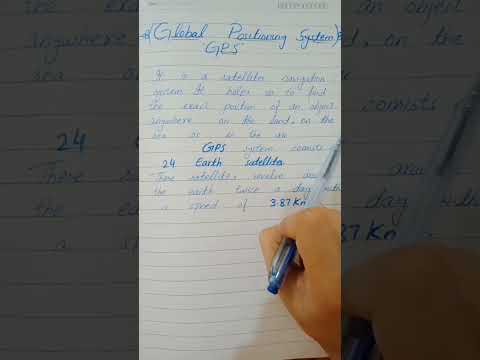 (Global Positioning System)
"GPS"
It is a satellite navigation
system. It helps us to find
the exact position of an object
anywhere on the land, on the
sea or in the air
GPS system consists
24 Earth satellites
These satellites revolve
the earth twice a day with
a speed of 3.87 Km